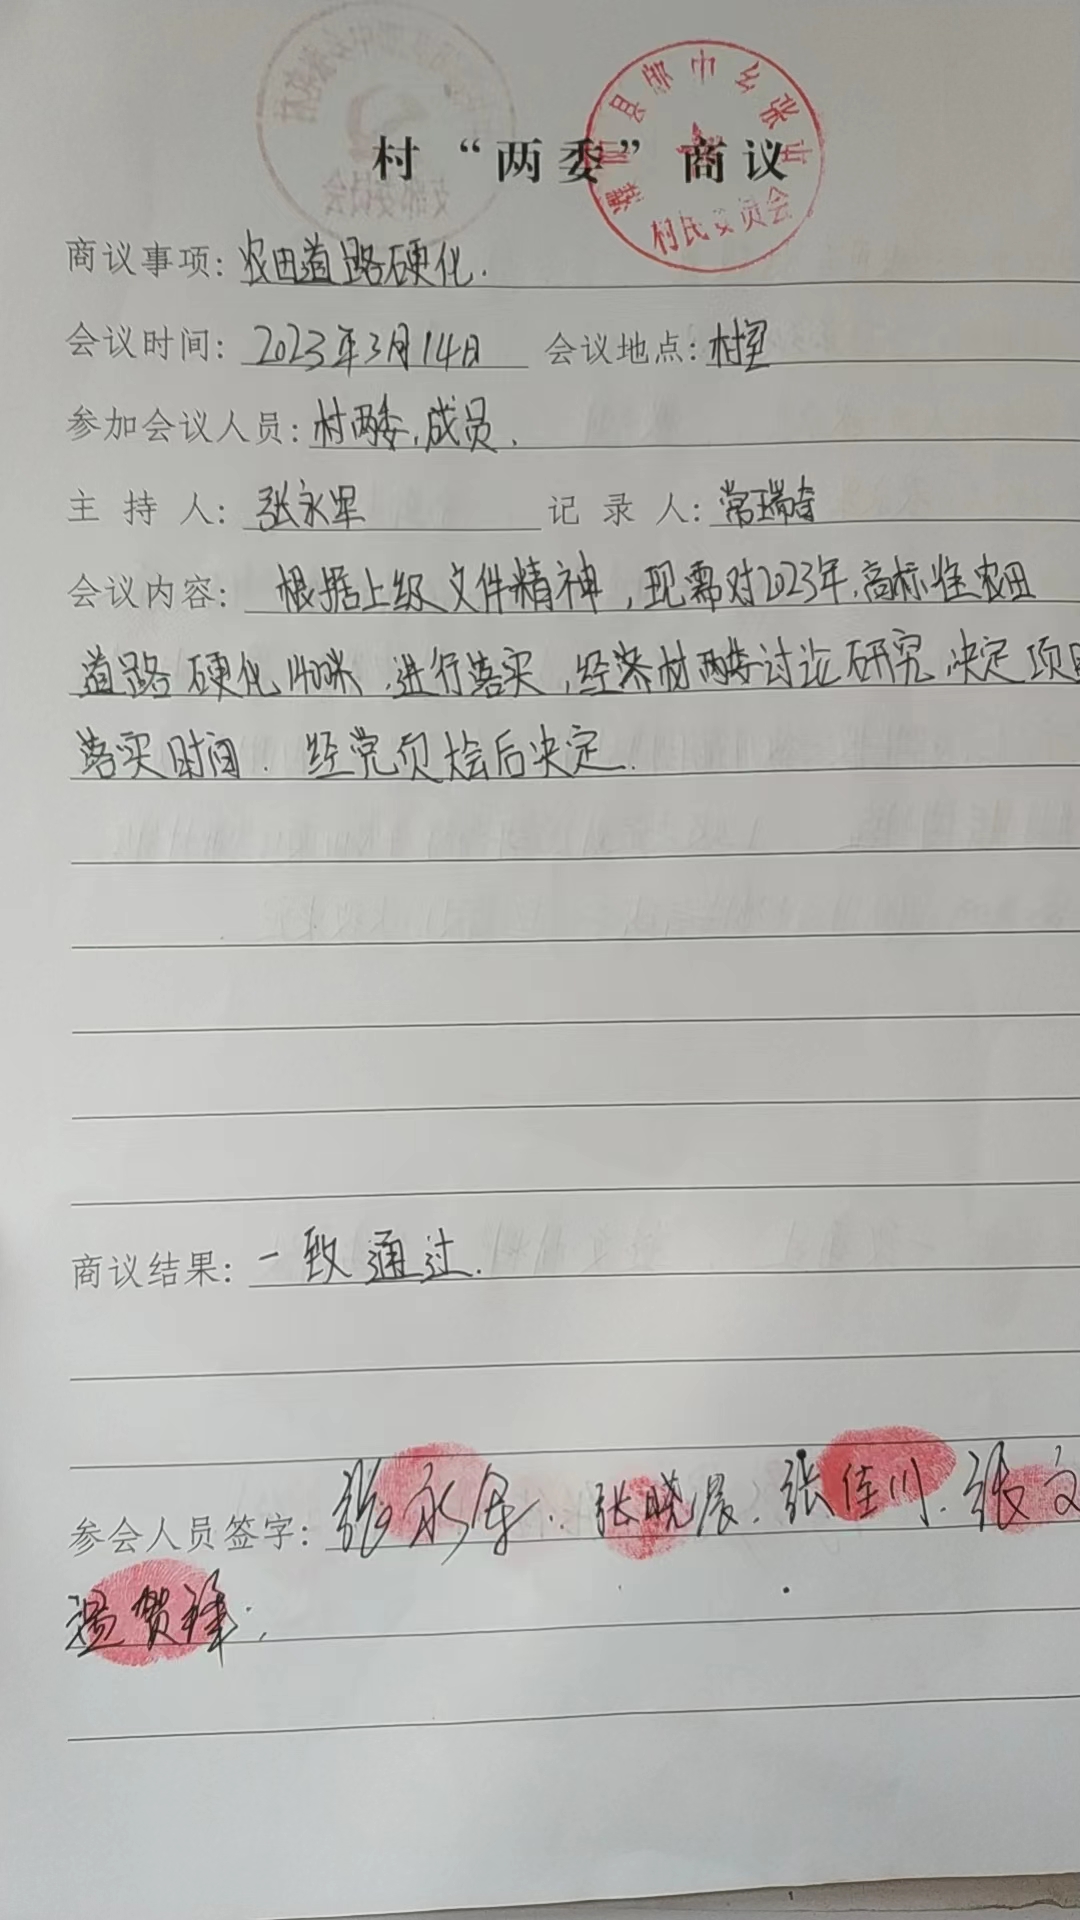 村“两委”商议
县 中乡张 村民委员会
支部委员会
商议事项：农田道路硬化.
会议时间：2023年3月14日 会议地点：村室
参加会议人员：村两委,成员.
主持人：张永军 记录人：常瑞奇
会议内容：根据上级文件精神,现需对2023年,高标准农田
道路硬化1400米,进行落实,经济村两委讨论研究,决定项目
落实时间. 经党员 会后决定.
商议结果：一致通过.
参会人员签字：张永军.张晓晨.张佳川.张文
温贺锋.